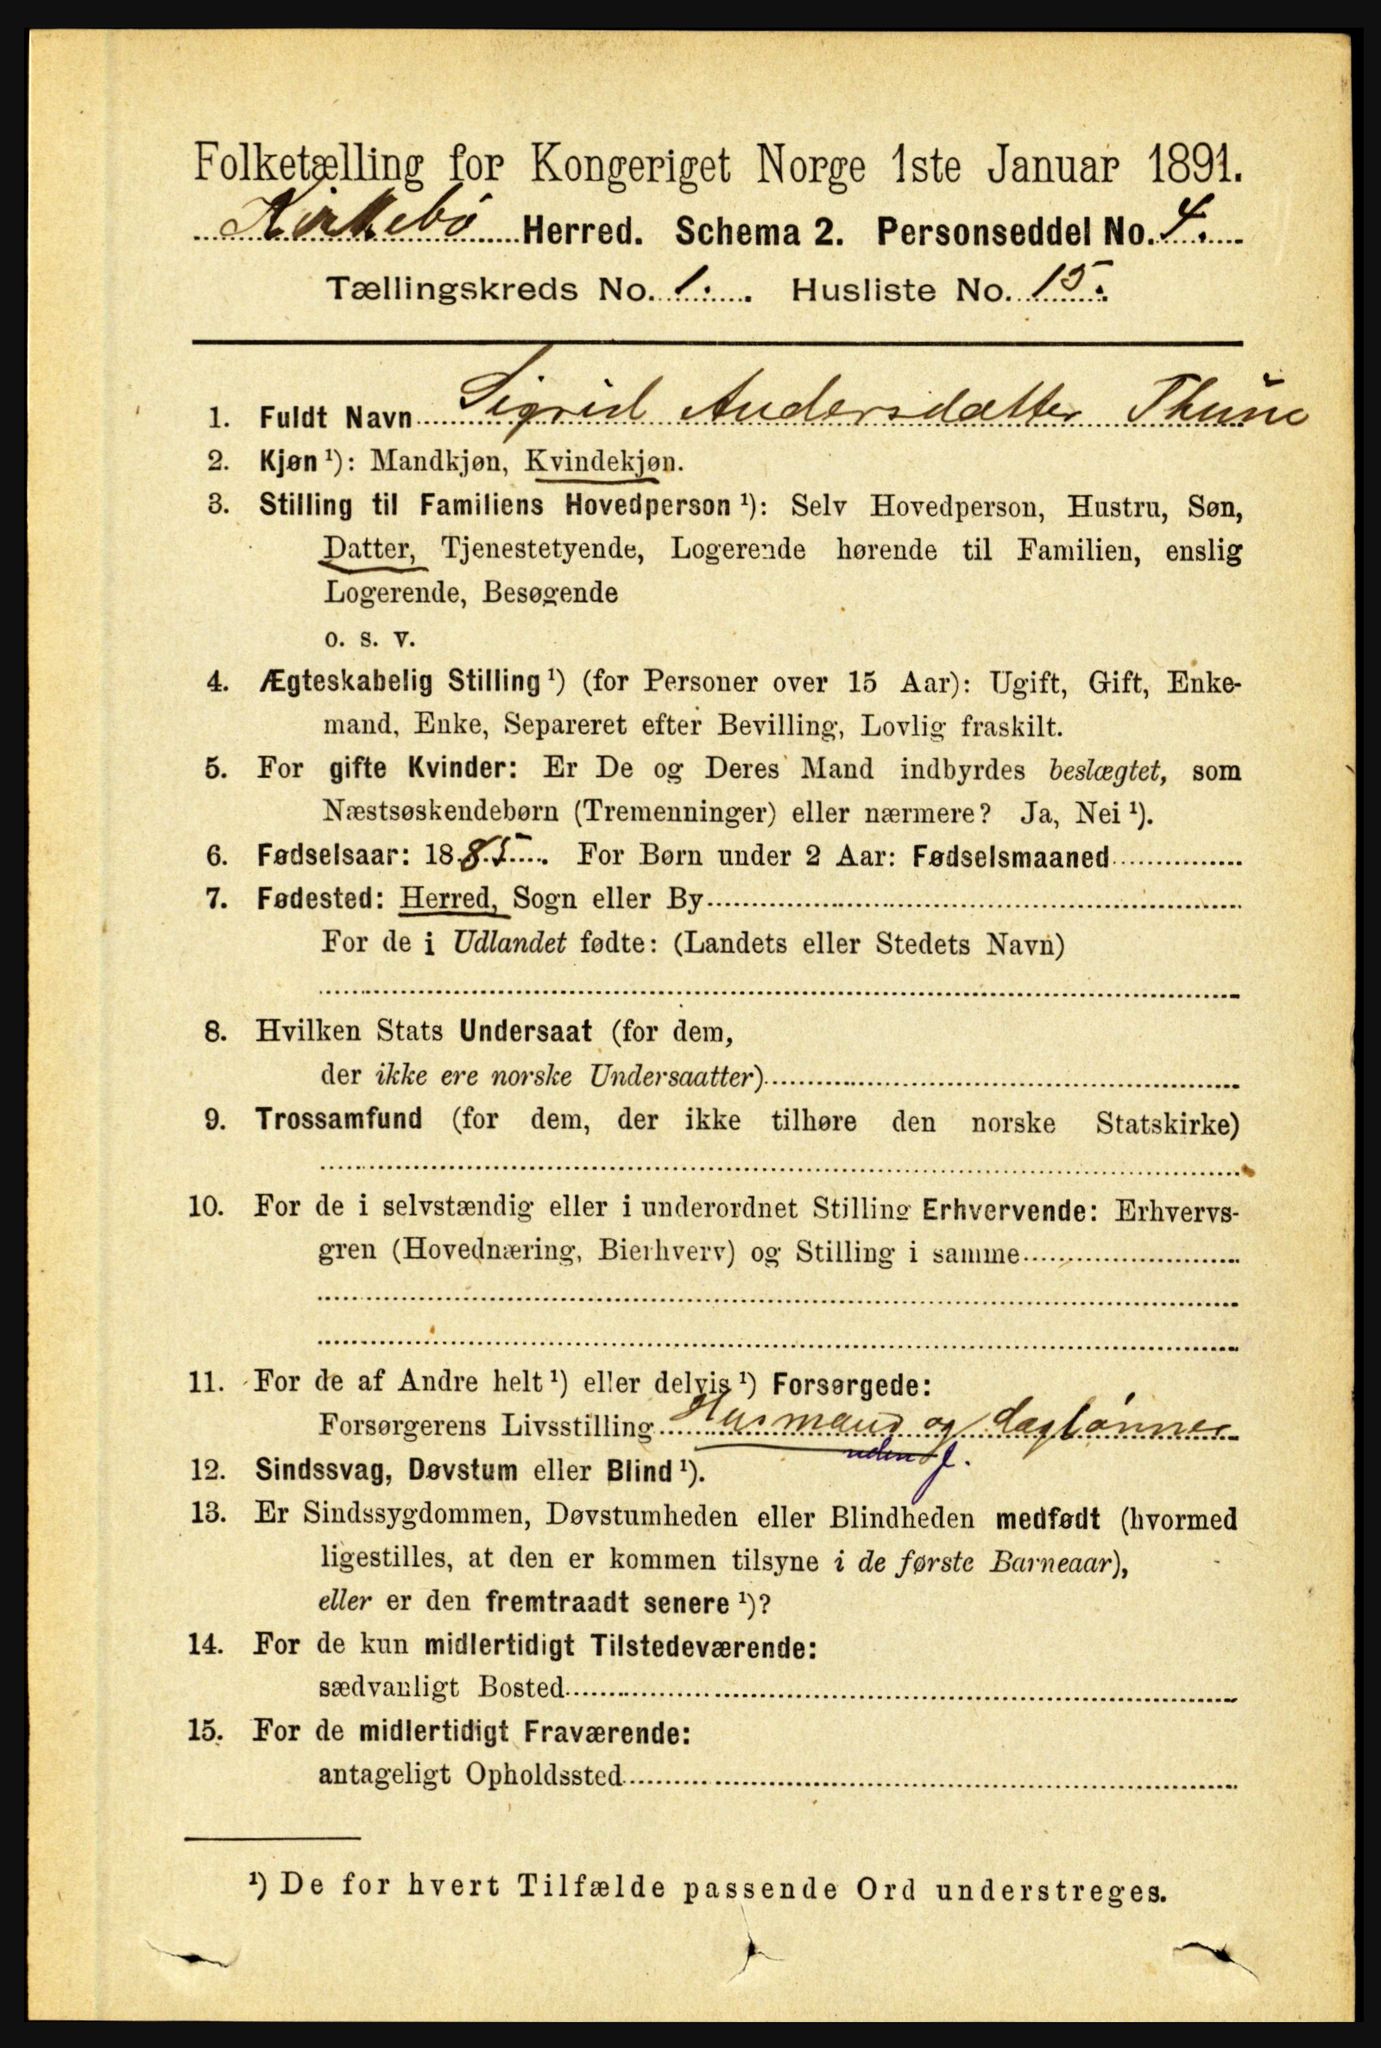 Folketælling for Kongeriget Norge 1ste Januar 1891.
Kirkebø Herred. Schema 2. Personseddel No. 4.
Tællingskreds No. 1. Husliste No. 15.
1. Fuldt Navn Sigrid Andersdatter Thune
2. Kjøn ¹): Mandkjøn, Kvindekjøn.
3. Stilling til Familiens Hovedperson ¹): Selv Hovedperson, Hustru, Søn,
Datter, Tjenestetyende, Logerende hørende til Familien, enslig
Logerende, Besøgende
o. s. v.
4. Ægteskabelig Stilling ¹) (for Personer over 15 Aar): Ugift, Gift, Enke-
mand, Enke, Separeret efter Bevilling, Lovlig fraskilt.
5. For gifte Kvinder: Er De og Deres Mand indbyrdes beslægtet, som
Næstsøskendebørn (Tremenninger) eller nærmere? Ja, Nei ¹).
6. Fødselsaar: 1885. For Børn under 2 Aar: Fødselsmaaned
7. Fødested: Herred, Sogn eller By
For de i Udlandet fødte: (Landets eller Stedets Navn)
8. Hvilken Stats Undersaat (for dem,
der ikke ere norske Undersaatter)
9. Trossamfund (for dem, der ikke tilhøre den norske Statskirke)
10. For de i selvstændig eller i underordnet Stilling Erhvervende: Erhvervs-
gren (Hovednæring, Bierhverv) og Stilling i samme
11. For de af Andre helt ¹) eller delvis ¹) Forsørgede:
Forsørgerens Livsstilling Husmand og daglønner
uden J.
12. Sindssvag, Døvstum eller Blind ¹).
13. Er Sindssygdommen, Døvstumheden eller Blindheden medfødt (hvormed
ligestilles, at den er kommen tilsyne i de første Barneaar),
eller er den fremtraadt senere ¹)?
14. For de kun midlertidigt Tilstedeværende:
sædvanligt Bosted
15. For de midlertidigt Fraværende:
antageligt Opholdssted
¹) De for hvert Tilfælde passende Ord understreges.